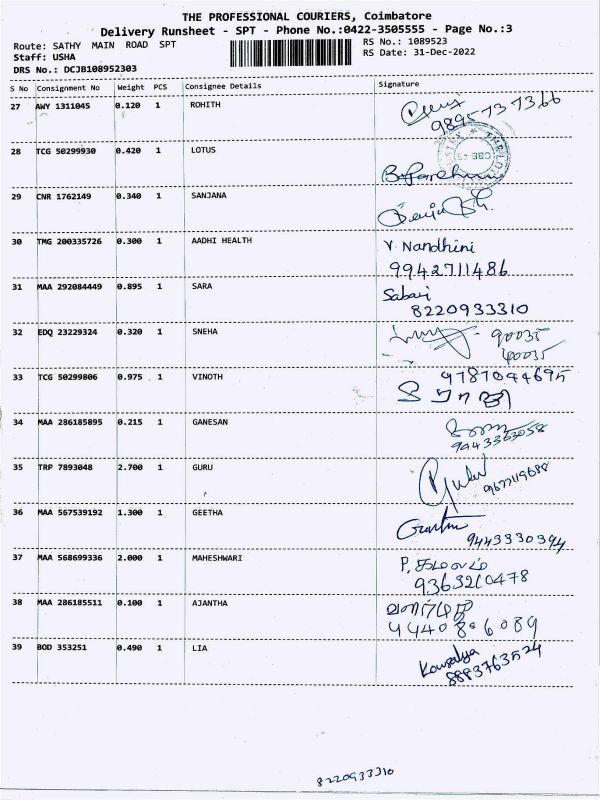 THE PROFESSIONAL COURIERS, Coimbatore
Delivery Runsheet - SPT - Phone No.:0422-3505555 - Page No.:3
Route: SATHY MAIN ROAD SPT
RS No.: 1089523
Staff: USHA
RS Date: 31-Dec-2022
DRS No.: DCJB108952303
S No Consignment No Weight PCS Consignee Details Signature
27 AWY 1311045 0.120 1 ROHITH
9895737366
28 TCG 50299930 0.420 1 LOTUS
29 CNR 1762149 0.340 1 SANJANA
30 TMG 200335726 0.300 1 AADHI HEALTH V. Nandhini
9942711486
31 MAA 292084449 0.895 1 SARA Sabari
8220933310
32 EDQ 23229324 0.320 1 SNEHA 90035
33 TCG 50299806 0.975 1 VINOTH 9787044695
34 MAA 286185895 0.215 1 GANESAN
9443363058
35 TRP 7893048 2.700 1 GURU Guru
9677119688
36 MAA 567539192 1.300 1 GEETHA
9443330394
37 MAA 568699336 2.000 1 MAHESHWARI P. கமலம்
9363210478
38 MAA 286185511 0.100 1 AJANTHA
39 BOD 353251 0.490 1 LIA Kowsalya
8883763524
8220933310